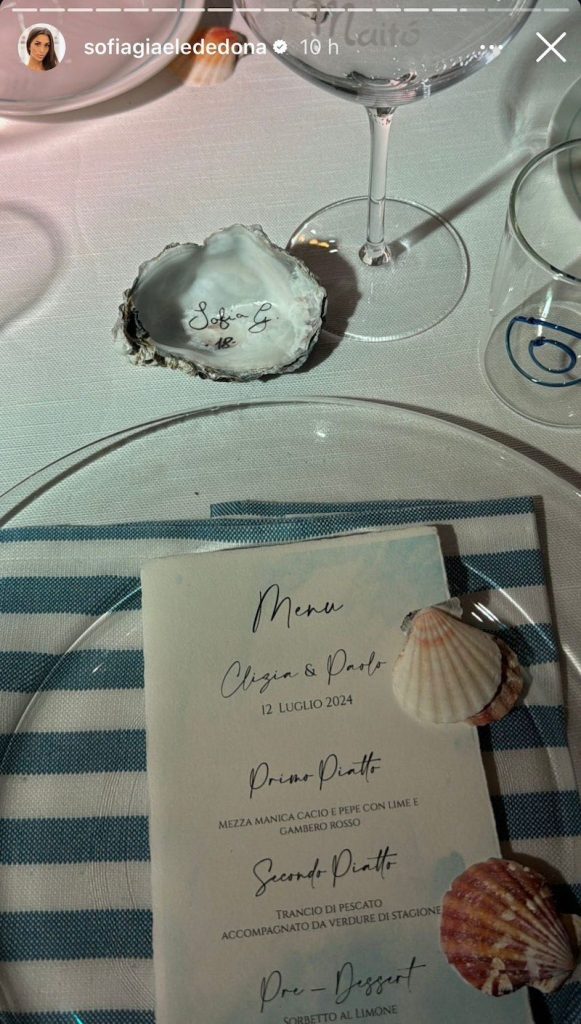 sofiagiaelededona 10 h
Maitó
Sofia G.
.18.
Menu
Clizia & Paolo
12 Luglio 2024
Primo Piatto
Mezza manica cacio e pepe con lime e
gambero rosso
Secondo Piatto
Trancio di pescato
accompagnato da verdure di stagione
Pre - Dessert
Sorbetto al Limone